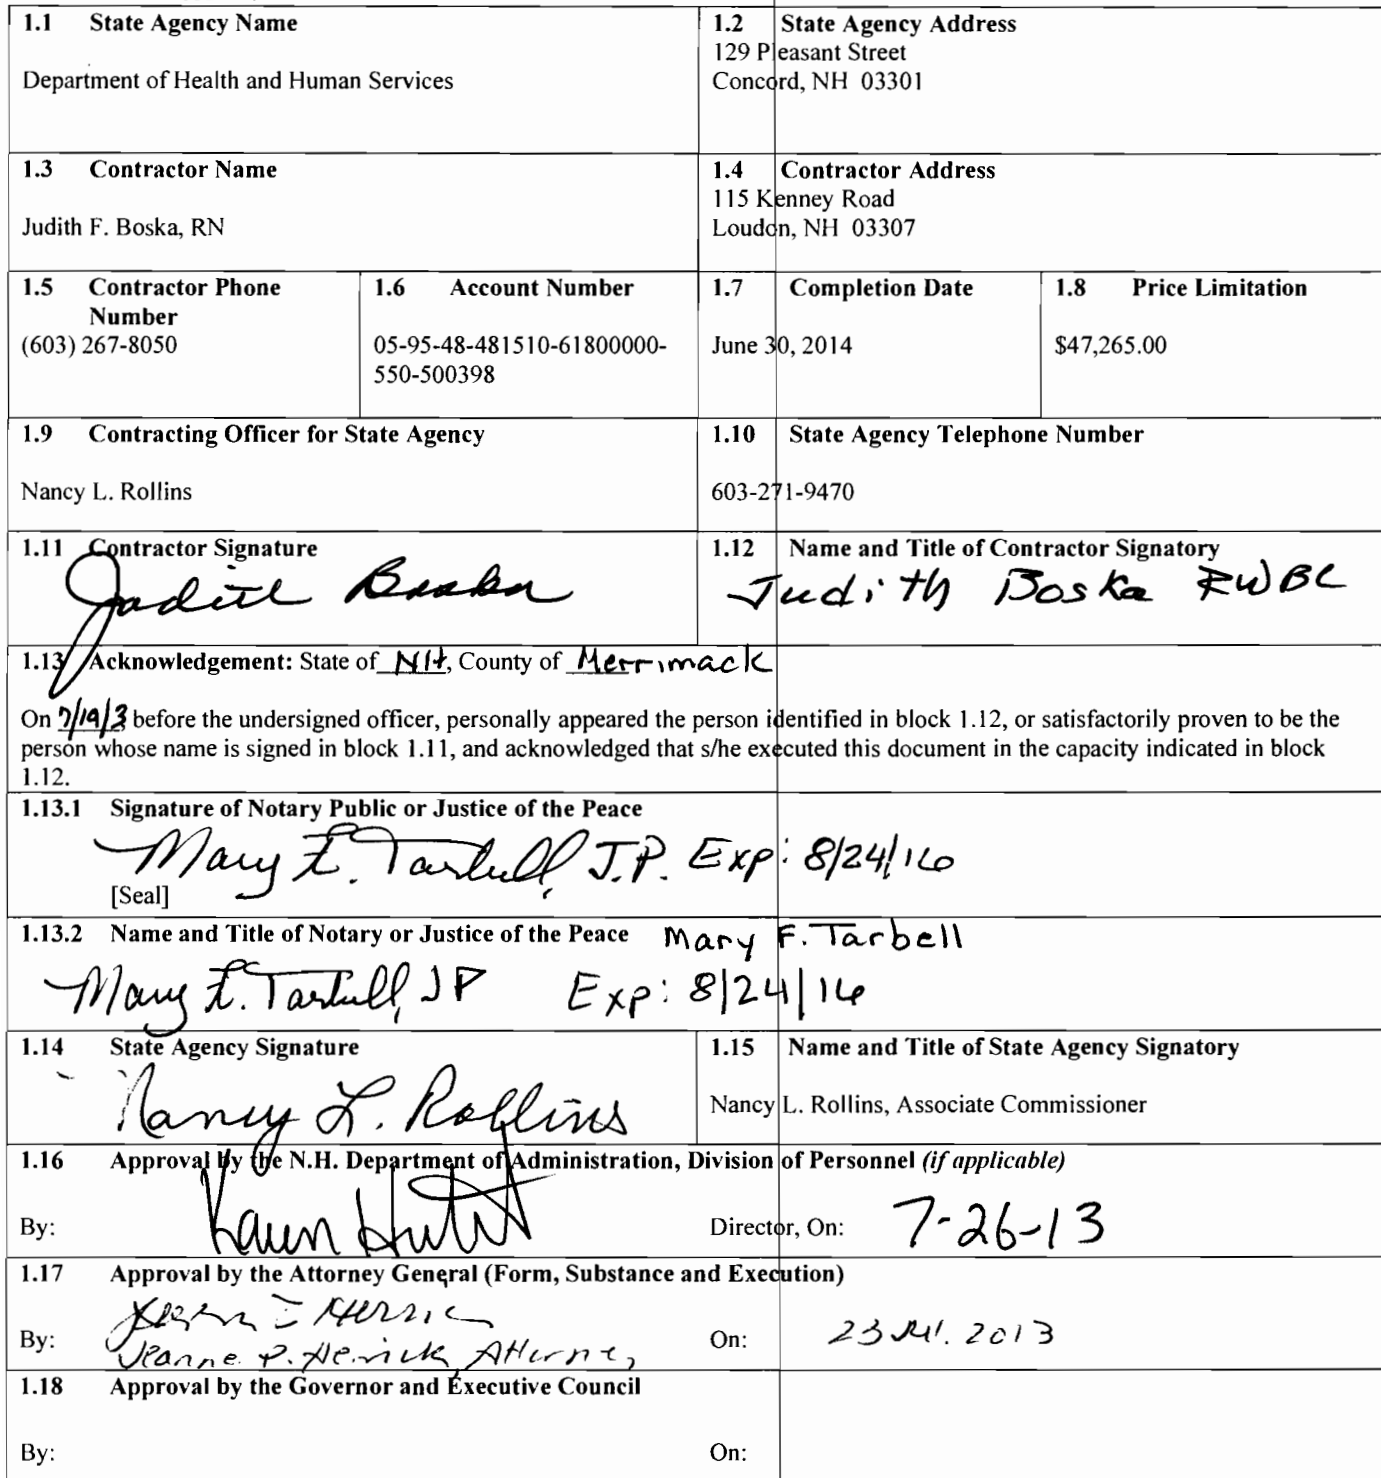 1.1 State Agency Name
Department of Health and Human Services
1.2 State Agency Address
129 Pleasant Street
Concord, NH 03301
1.3 Contractor Name
Judith F. Boska, RN
1.4 Contractor Address
115 Kenney Road
Loudon, NH 03307
1.5 Contractor Phone
Number
(603) 267-8050
1.6 Account Number
05-95-48-481510-61800000-
550-500398
1.7 Completion Date
June 30, 2014
1.8 Price Limitation
$47,265.00
1.9 Contracting Officer for State Agency
Nancy L. Rollins
1.10 State Agency Telephone Number
603-271-9470
1.11 Contractor Signature
Judith Boska
1.12 Name and Title of Contractor Signatory
Judith Boska RWBC
1.13 Acknowledgement: State of NH, County of Merrimack
On 7/19/3 before the undersigned officer, personally appeared the person identified in block 1.12, or satisfactorily proven to be the
person whose name is signed in block 1.11, and acknowledged that s/he executed this document in the capacity indicated in block
1.12.
1.13.1 Signature of Notary Public or Justice of the Peace
Mary F. Tarbell, J.P. Exp: 8/24/16
[Seal]
1.13.2 Name and Title of Notary or Justice of the Peace Mary F. Tarbell
Mary F. Tarbell, JP Exp: 8/24/16
1.14 State Agency Signature
Nancy L. Rollins
1.15 Name and Title of State Agency Signatory
Nancy L. Rollins, Associate Commissioner
1.16 Approval by the N.H. Department of Administration, Division of Personnel (if applicable)
By: Karen
Director, On: 7-26-13
1.17 Approval by the Attorney General (Form, Substance and Execution)
By: Jeanne P. Herrick, Attorney
On: 23 Jul. 2013
1.18 Approval by the Governor and Executive Council
By:
On: